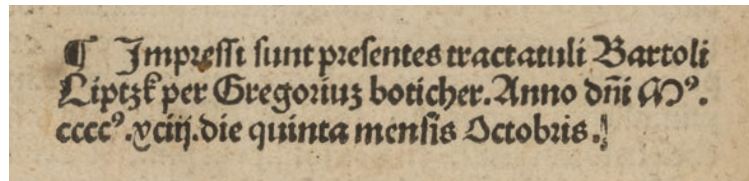 ¶ Impressi sunt presentes tractatuli Bartoli
Liptzk per Gregoriuʒ boticher. Anno dn̄i Mꝰ.
ccccꝰ.xciij. die quinta mensis Octobris.